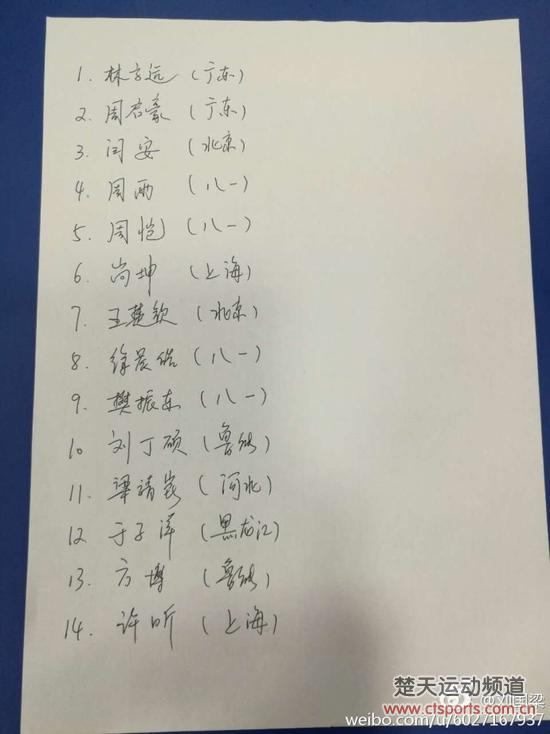 1. 林高远 (广东)
2. 周启豪 (广东)
3. 闫安 (北京)
4. 周雨 (八一)
5. 周恺 (八一)
6. 尚坤 (上海)
7. 王楚钦 (北京)
8. 徐晨皓 (八一)
9. 樊振东 (八一)
10 刘丁硕 (鲁能)
11. 梁靖崑 (河北)
12. 于子洋 (黑龙江)
13. 方博 (鲁能)
14. 许昕 (上海)
楚天运动频道
@刘国梁
www.ctsports.com.cn
weibo.com/u/6027167937